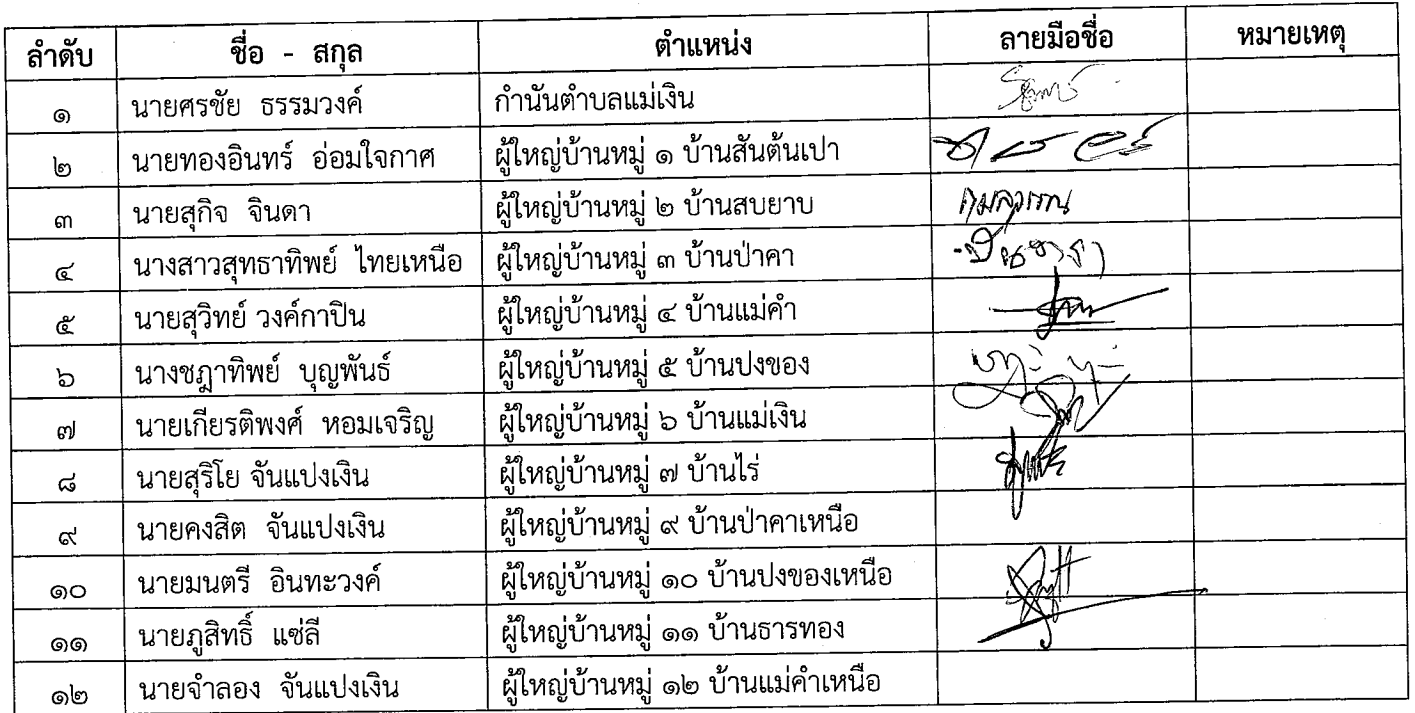 ลำดับ ชื่อ - สกุล ตำแหน่ง ลายมือชื่อ หมายเหตุ
๑ นายศรชัย ธรรมวงค์ กำนันตำบลแม่เงิน
๒ นายทองอินทร์ อ่อมใจกาศ ผู้ใหญ่บ้านหมู่ ๑ บ้านสันต้นเปา
๓ นายสุกิจ จินดา ผู้ใหญ่บ้านหมู่ ๒ บ้านสบยาบ
๔ นางสาวสุทธาทิพย์ ไทยเหนือ ผู้ใหญ่บ้านหมู่ ๓ บ้านป่าคา
๕ นายสุวิทย์ วงค์กาปิน ผู้ใหญ่บ้านหมู่ ๔ บ้านแม่คำ
๖ นางชฎาทิพย์ บุญพันธ์ ผู้ใหญ่บ้านหมู่ ๕ บ้านปงของ
๗ นายเกียรติพงศ์ หอมเจริญ ผู้ใหญ่บ้านหมู่ ๖ บ้านแม่เงิน
๘ นายสุริโย จันแปงเงิน ผู้ใหญ่บ้านหมู่ ๗ บ้านไร่
๙ นายคงสิต จันแปงเงิน ผู้ใหญ่บ้านหมู่ ๙ บ้านป่าคาเหนือ
๑๐ นายมนตรี อินทะวงค์ ผู้ใหญ่บ้านหมู่ ๑๐ บ้านปงของเหนือ
๑๑ นายภูสิทธิ์ แซ่ลี ผู้ใหญ่บ้านหมู่ ๑๑ บ้านธารทอง
๑๒ นายจำลอง จันแปงเงิน ผู้ใหญ่บ้านหมู่ ๑๒ บ้านแม่คำเหนือ